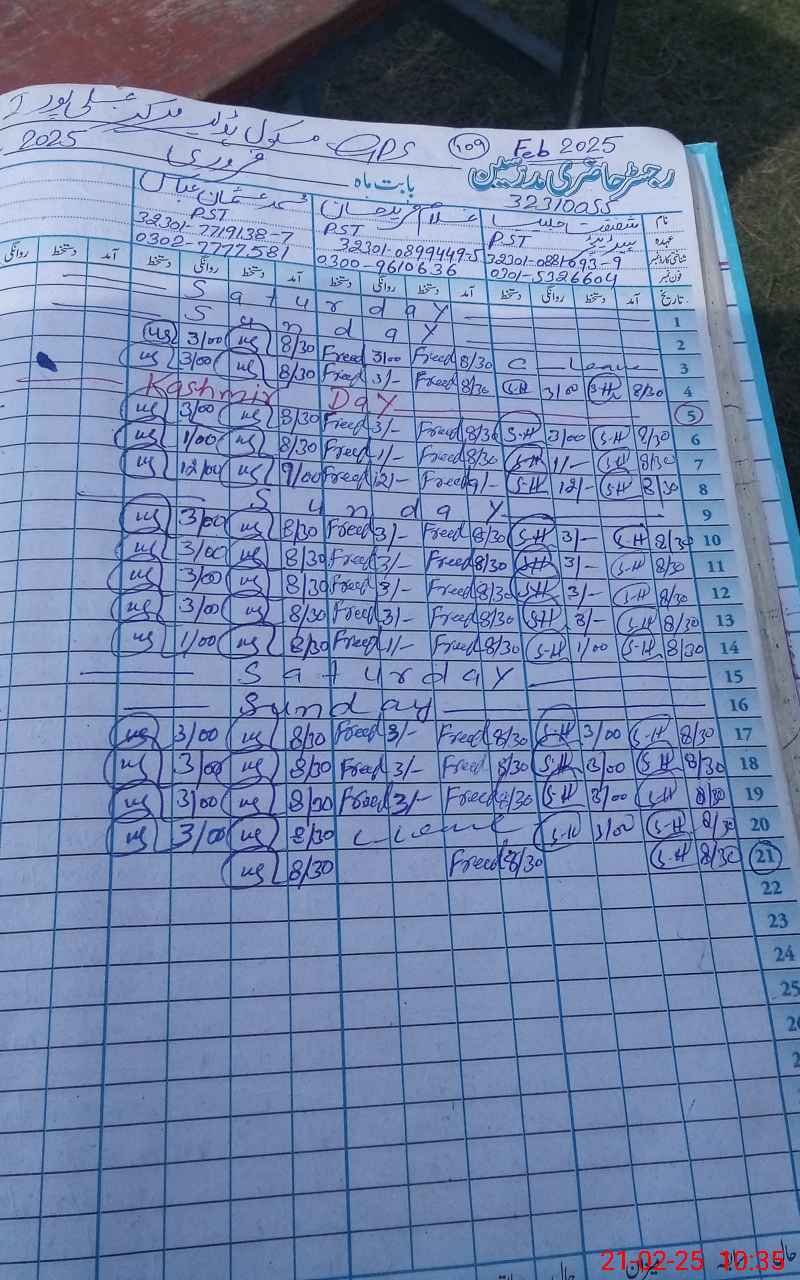 GPS سکول پولیر مرکز
109 Feb 2025
2025 فروری
رجسٹر حاضری مدرسین بابت ماہ
32310055
نام شفقت حسیب غلام فرید خان محمد عثمان عباس
عہدہ PST PST PST
شناختی کارڈ نمبر 32301-0881693-9 32301-0899449-5 32301-7719138-7
فون نمبر 0301-5326604 0300-9610636 0302-7777581
تاریخ آمد دستخط روانگی دستخط آمد دستخط روانگی دستخط آمد دستخط روانگی دستخط آمد دستخط روانگی
Saturday 1
Sunday 2
3/00 8/30 Freed 3/00 Freed 8/30 C Leave 3
3/00 8/30 Freed 3/- Freed 8/30 S-H 3/00 S-H 8/30 4
Kashmir Day 5
3/00 8/30 Freed 3/- Freed 8/30 S-H 3/00 S-H 8/30 6
1/00 8/30 Freed 1/- Freed 8/30 S-H 1/- S-H 8/30 7
12/00 9/00 Freed 12/- Freed 9/- S-H 12/- S-H 8/30 8
Sunday 9
3/00 8/30 Freed 3/- Freed 8/30 S-H 3/- S-H 8/30 10
3/00 8/30 Freed 3/- Freed 8/30 S-H 3/- S-H 8/30 11
3/00 8/30 Freed 3/- Freed 8/30 S-H 3/- S-H 8/30 12
3/00 8/30 Freed 3/- Freed 8/30 S-H 3/- S-H 8/30 13
1/00 8/30 Freed 1/- Freed 8/30 S-H 1/00 S-H 8/30 14
Saturday 15
Sunday 16
3/00 8/30 Freed 3/- Freed 8/30 S-H 3/00 S-H 8/30 17
3/00 8/30 Freed 3/- Freed 8/30 S-H 3/00 S-H 8/30 18
3/00 8/30 Freed 3/- Freed 8/30 S-H 3/00 S-H 8/30 19
3/00 8/30 S-H 3/00 S-H 8/30 20
8/30 Freed 8/30 S-H 8/30 21
22
23
24
25
میزان
21-02-25 10:35